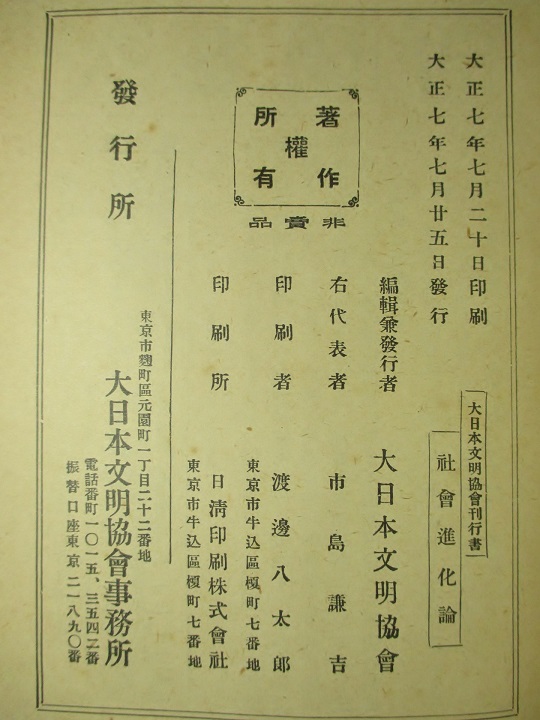 大正七年七月二十日印刷
大正七年七月廿五日發行
大日本文明協會刊行書
社會進化論
著作權所有
非賣品
編輯兼發行者 大日本文明協會
右代表者 市島謙吉
印刷者 渡邊八太郎
東京市牛込區榎町七番地
印刷所 日淸印刷株式會社
東京市牛込區榎町七番地
發行所
東京市麴町區元園町一丁目二十二番地
大日本文明協會事務所
電話番町一〇一五、三五四二番
振替口座東京二一八九〇番